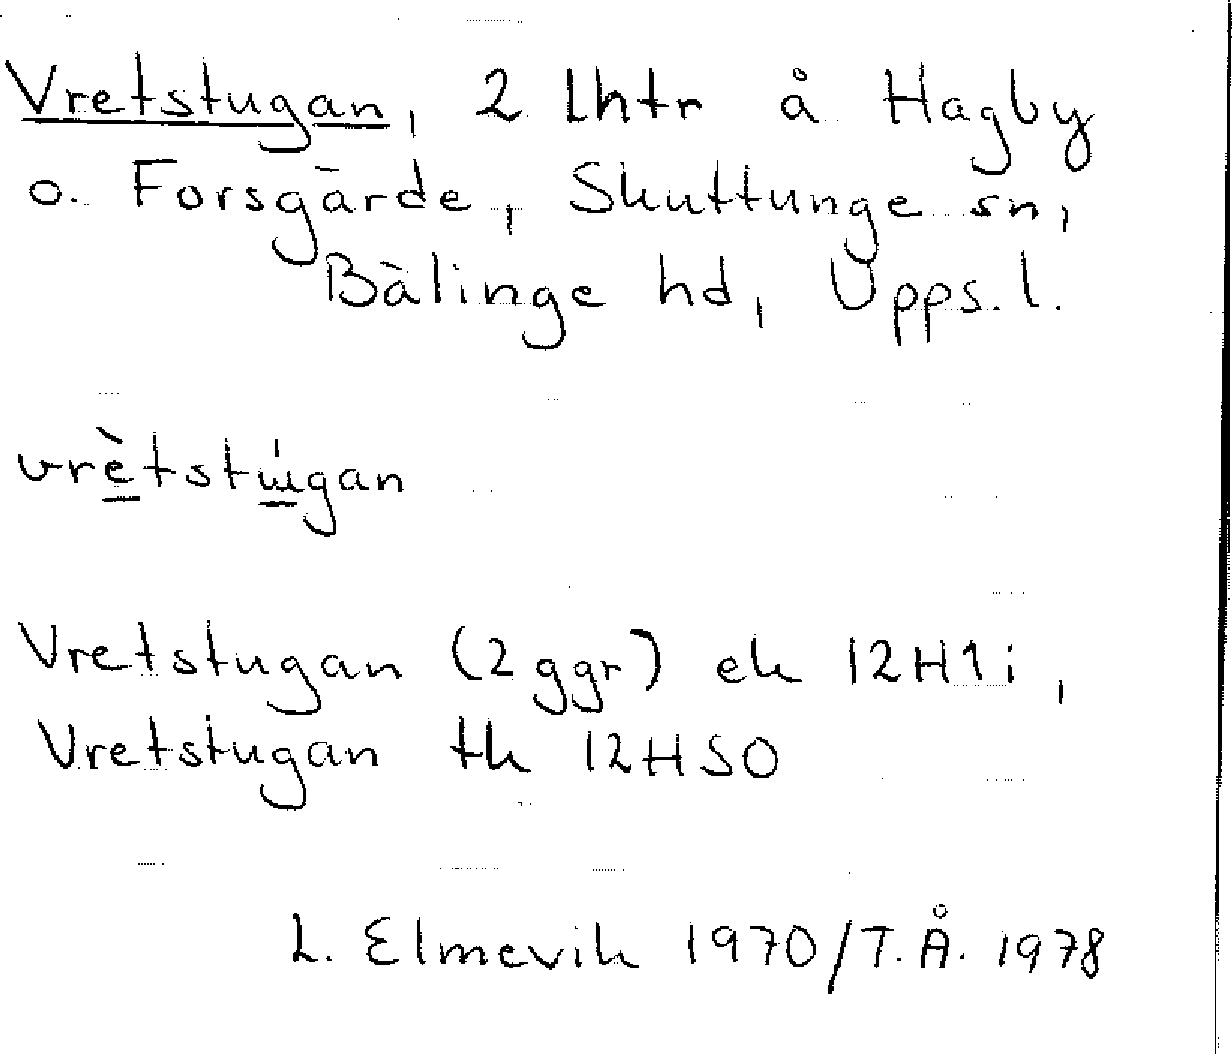 Vretstugan, 2 lhtr å Hagby
o. Forsgärde, Skuttunge sn,
Bälinge hd, Upps. l.
vrètstu̇gan
Vretstugan (2 ggr) ek 12H1i,
Vretstugan tk 12HSO
L. Elmevik 1970/T.Å. 1978